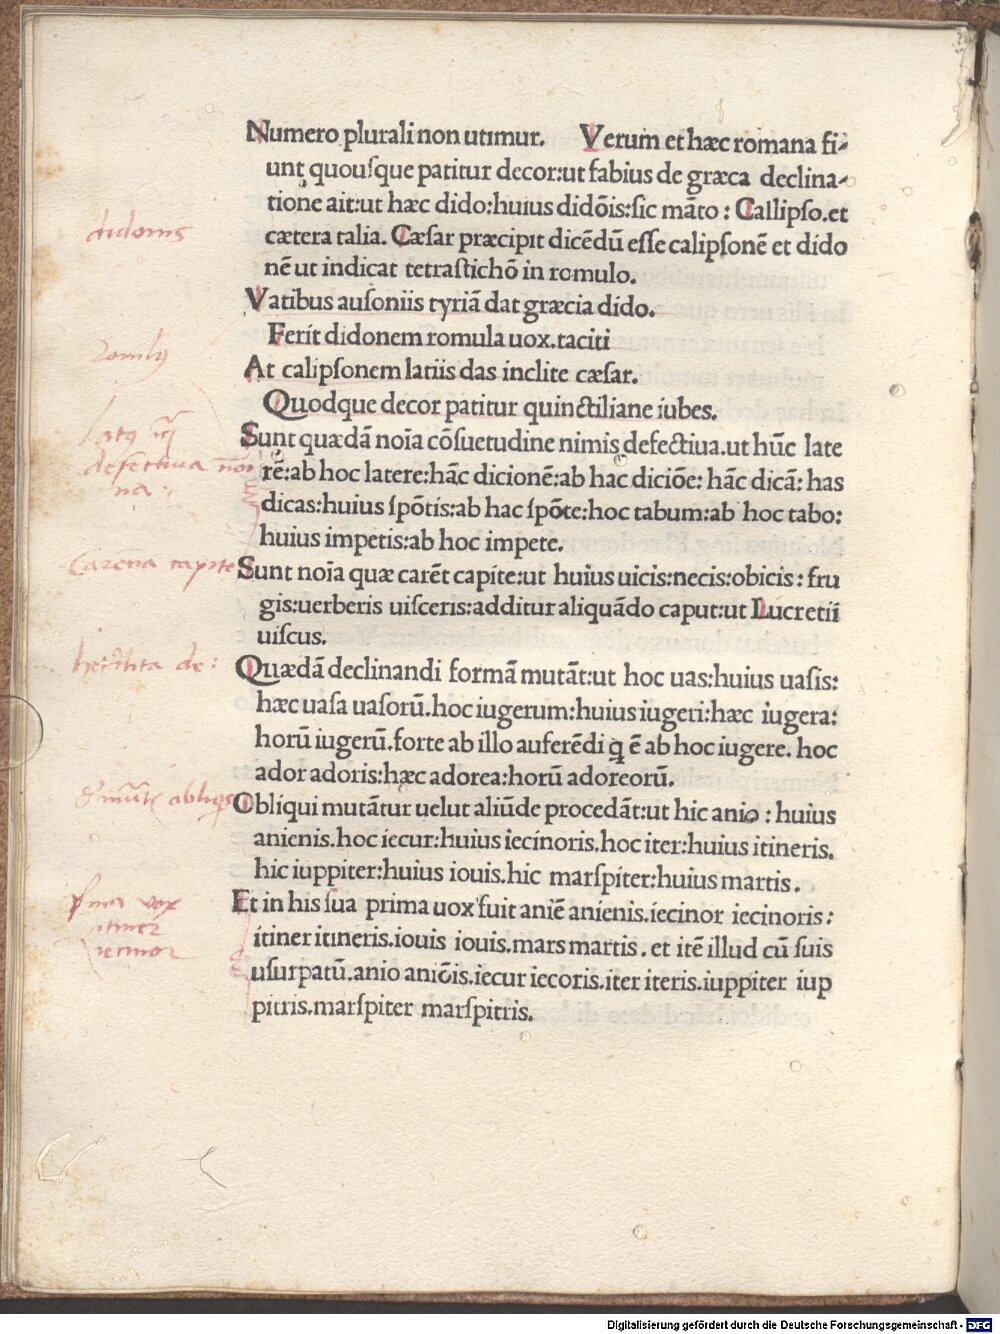 Numero plurali non utimur. Verum et hæc romana fi-
unt quouſque patitur decor:ut fabius de græca declina-
tione ait:ut hæc dido:huius didõis:ſic mãto : Callipſo.et
cætera talia. Cæſar præcipit dicẽdũ eſſe calipſonẽ et dido
nẽ ut indicat tetraſtichõ in romulo.
Vatibus auſoniis tyriã dat græcia dido.
Ferit didonem romula uox.taciti
At calipſonem latiis das inclite cæſar.
Quodque decor patitur quinctiliane iubes.
Sunt quædã noĩa cõſuetudine nimis defectiua.ut hũc late
rẽ:ab hoc latere:hãc dicionẽ:ab hac diciõe: hãc dicã: has
dicas:huius ſpõtis:ab hac ſpõte:hoc tabum:ab hoc tabo:
huius impetis:ab hoc impete.
Sunt noĩa quæ carẽt capite:ut huius uicis:necis:obicis : fru
gis:uerberis uiſceris:additur aliquãdo caput:ut Lucretii
uiſcus.
Quædã declinandi formã mutãt:ut hoc uas:huius uaſis:
hæc uaſa uaſorũ.hoc iugerum:huius iugeri:hæc iugera:
horũ iugerũ.forte ab illo auferẽdi q̃ ẽ ab hoc iugere. hoc
ador adoris:hæc adorea:horũ adoreorũ.
Obliqui mutãtur uelut aliũde procedãt:ut hic anio : huius
anienis.hoc iecur:huius iecinoris.hoc iter:huius itineris.
hic iuppiter:huius iouis.hic marſpiter:huius martis.
Et in his ſua prima uox fuit aniẽ anienis.iecinor iecinoris:
itiner itineris.iouis iouis.mars martis. et itẽ illud cũ ſuis
uſurpatũ.anio aniõis.iecur iecoris.iter iteris.iuppiter iup
pitris.marſpiter marſpitris.
didonis
defectiua
Carentia capite
itiner
iecinor
Digitalisierung gefördert durch die Deutsche Forschungsgemeinschaft - DFG